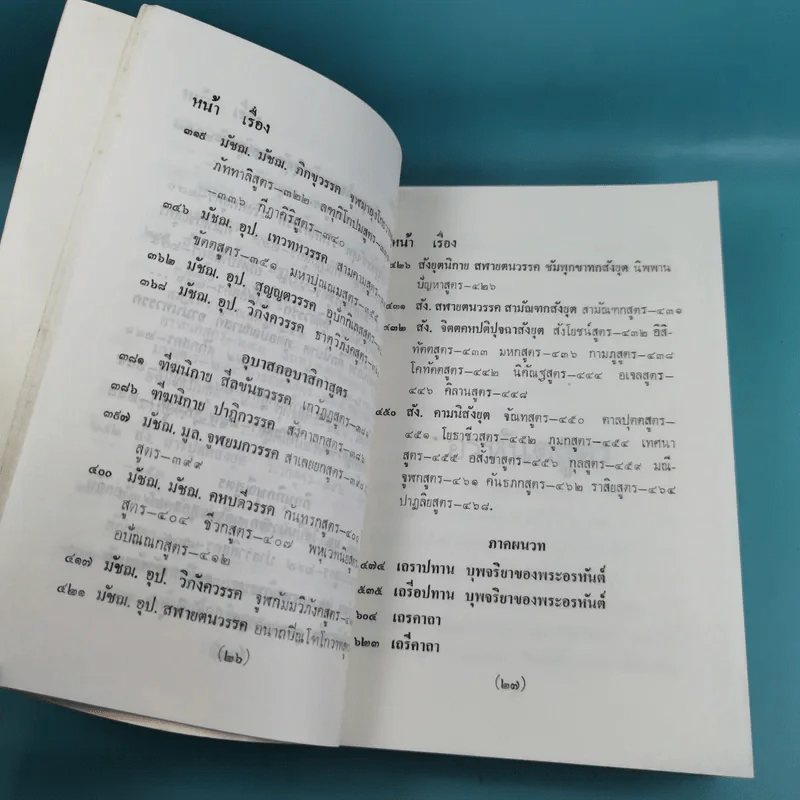 หน้า เรื่อง
๓๑๙ มัชฌ. มัชฌ. ภิกขุวรรค
ภัททาลิสูตร–๓๒๒ ลฑุกิโกปมสูตร–
–๓๓๖ กีฏาคิริสูตร–๓๔๐
๓๔๖ มัชฌ. อุป. เทวทหวรรค สามคามสูตร–
ขัตตสูตร–๓๕๑ มหาปุณณมสูตร–๓๕๕
๓๖๒ มัชฌ. อุป. สุญญตวรรค อุปักกิเลสสูตร–
๓๖๘ มัชฌ. อุป. วิภังควรรค ธาตุวิภังคสูตร–
อุบาสกอุบาสิกาสูตร
๓๘๑ ฑีฆนิกาย สีลขันธวรรค เกวัฏฏสูตร–
๓๘๖ ฑีฆนิกาย ปาฏิกวรรค สิงคาลกสูตร–
๓๙๗ มัชฌ. มูล. จูฬยมกวรรค สาเลยยกสูตร–
สูตร–๓๙๙
๔๐๐ มัชฌ. มัชฌ. คหบดีวรรค กันทรกสูตร–
สูตร–๔๐๔ ชีวกสูตร–๔๐๗ พหุเวทนิยสูตร–
อปัณณกสูตร–๔๑๒
๔๑๗ มัชฌ. อุป. วิภังควรรค จูฬกัมมวิภังคสูตร–
๔๒๑ มัชฌ. อุป. สฬายตนวรรค
(๒๖)
หน้า เรื่อง
๔๒๖ สังยุตนิกาย สฬายตนวรรค ชัมพุกขาทกสังยุต นิพพาน
ปัญหาสูตร–๔๒๖
๔๓๑ สัง. สฬายตนวรรค สามัณฑกสังยุต สามัณฑกสูตร–๔๓๑
๔๓๒ สัง. จิตตคหปติปุจฉาสังยุต สังโยชน์สูตร–๔๓๒ อิสิ-
ทัตตสูตร–๔๓๓ มหกสูตร–๔๓๖ กามภูสูตร–๔๓๘
โคทัตตสูตร–๔๔๒ นิคัณฐสูตร–๔๔๔ อเจลสูตร–
๔๔๖ คิลานสูตร–๔๔๘
๔๕๐ สัง. คามนิสังยุต จัณฑสูตร–๔๕๐ ตาลปุตตสูตร–
๔๕๑ โยธาชีวสูตร–๔๕๒ ภูมกสูตร–๔๕๔ เทศนา
สูตร–๔๕๕ อสังขาสูตร–๔๕๖ กุลสูตร–๔๕๙ มณี-
จูฬกสูตร–๔๖๑ คันธภกสูตร–๔๖๒ ราสิยสูตร–๔๖๔
ปาฏลิยสูตร–๔๖๘.
ภาคผนวก
๔๗๔ เถราปทาน บุพจริยาของพระอรหันต์
๕๓๕ เถรีอปทาน บุพจริยาของพระอรหันต์
๖๐๔ เถรคาถา
๖๒๓ เถรีคาถา
(๒๗)